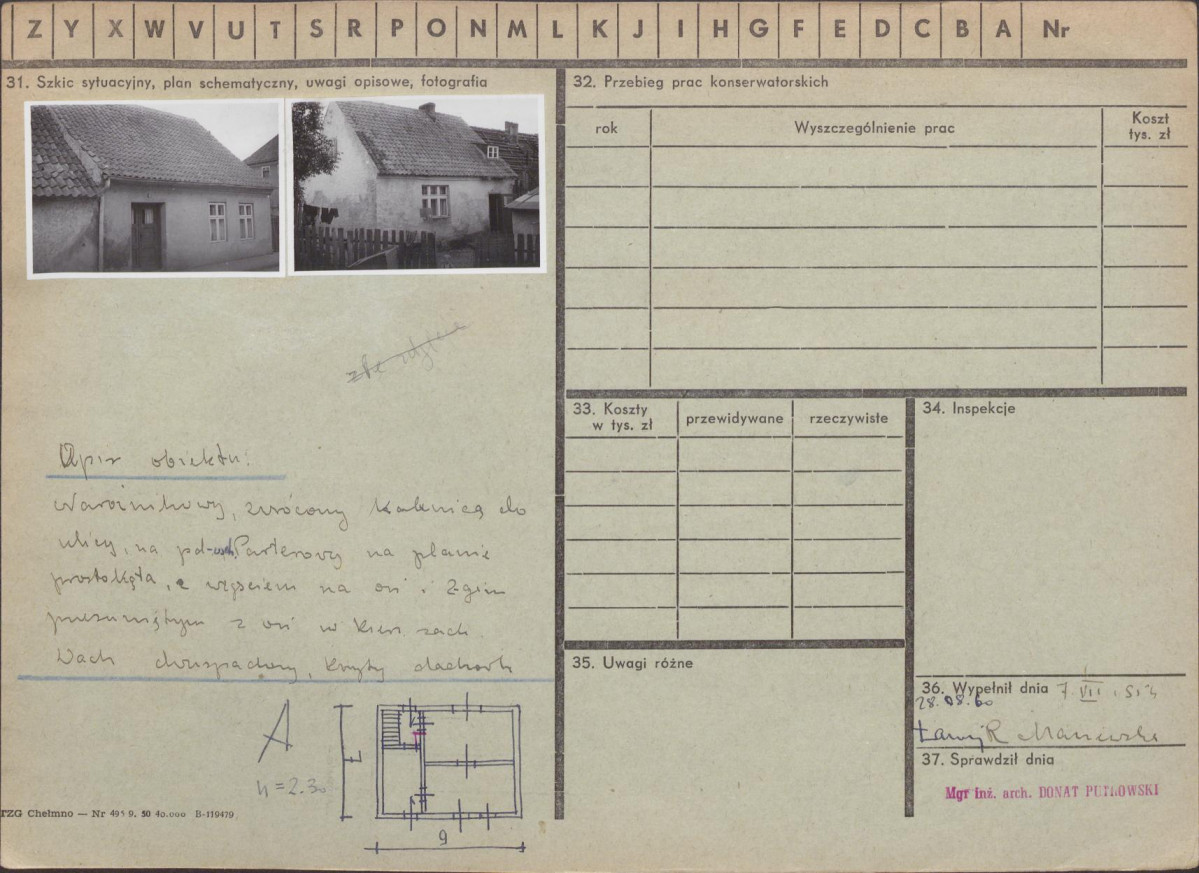 Z Y X W V U T S R P O N M L K J I H G F E D C B A Nr
31. Szkic sytuacyjny, plan schematyczny, uwagi opisowe, fotografia
Opis obiektu:
Narożnikowy, zwrócony kalenicą do
ulicy, na pd-wsch. Parterowy na planie
prostokąta, z wejściem na osi i 2-gim
przesuniętym z osi w kier. zach.
Dach dwuspadowy, kryty dachówk
A
h = 2.30
7
9
TZG Chełmno — Nr 495 9. 50 40.000 B-119479
32. Przebieg prac konserwatorskich
rok
Wyszczególnienie prac
Koszt
tys. zł
33. Koszty
w tys. zł
przewidywane
rzeczywiste
34. Inspekcje
35. Uwagi różne
36. Wypełnił dnia 7. VII
28.08.60
37. Sprawdził dnia
Mgr inż. arch. DONAT PUTKOWSKI